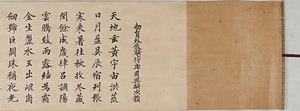 勑員外散騎侍郎周興嗣次韻
天地玄黃宇宙洪荒
日月盈昃辰宿列張
寒來暑往秋收冬藏
閏餘成歲律呂調陽
雲騰致雨露結為霜
金生麗水玉出崑岡
劍號巨闕珠稱夜光